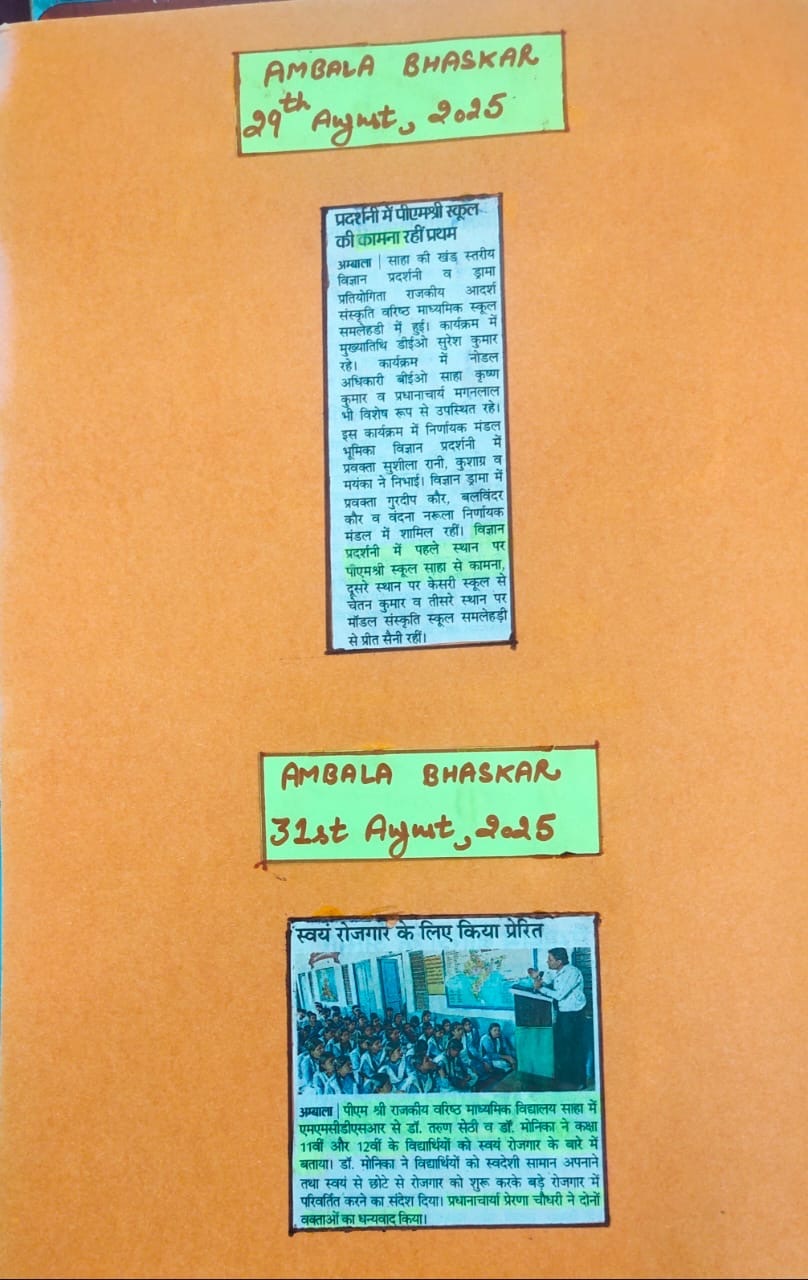 AMBALA BHASKAR
29th August, 2025
प्रदर्शनी में पीएमश्री स्कूल
की कामना रहीं प्रथम
अम्बाला | साहा की खंड स्तरीय
विज्ञान प्रदर्शनी व ड्रामा
प्रतियोगिता राजकीय आदर्श
संस्कृति वरिष्ठ माध्यमिक स्कूल
समलेहडी में हुई। कार्यक्रम में
मुख्यातिथि डीईओ सुरेश कुमार
रहे। कार्यक्रम में नोडल
अधिकारी बीईओ साहा कृष्ण
कुमार व प्रधानाचार्य मगनलाल
भी विशेष रूप से उपस्थित रहे।
इस कार्यक्रम में निर्णायक मंडल
भूमिका विज्ञान प्रदर्शनी में
प्रवक्ता सुशीला रानी, कुशाग्र व
मयंका ने निभाई। विज्ञान ड्रामा में
प्रवक्ता गुरदीप कौर, बलविंदर
कौर व वंदना नरूला निर्णायक
मंडल में शामिल रहीं। विज्ञान
प्रदर्शनी में पहले स्थान पर
पीएमश्री स्कूल साहा से कामना,
दूसरे स्थान पर केसरी स्कूल से
चेतन कुमार व तीसरे स्थान पर
मॉडल संस्कृति स्कूल समलेहड़ी
से प्रीत सैनी रहीं।
AMBALA BHASKAR
31st August, 2025
स्वयं रोजगार के लिए किया प्रेरित
अम्बाला | पीएम श्री राजकीय वरिष्ठ माध्यमिक विद्यालय साहा में
एमएमसीडीएसआर से डॉ. तरुण सेठी व डॉ. मोनिका ने कक्षा
11वीं और 12वीं के विद्यार्थियों को स्वयं रोजगार के बारे में
बताया। डॉ. मोनिका ने विद्यार्थियों को स्वदेशी सामान अपनाने
तथा स्वयं से छोटे से रोजगार को शुरू करके बड़े रोजगार में
परिवर्तित करने का संदेश दिया। प्रधानाचार्या प्रेरणा चौधरी ने दोनों
वक्ताओं का धन्यवाद किया।